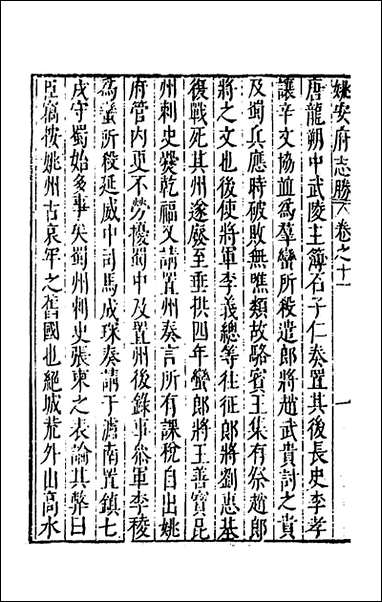 姚安府志勝 卷之十一
唐龍朔中武陵主簿石子仁奏置其後長史李孝
讓辛文協並為羣蠻所殺遣郎將趙武貴討之貴
及蜀兵應時破敗無噍類故駱賓王集有祭趙郎
將之文也後使將軍李義總等往征郎將劉惠基
後戰死其州遂廢至垂拱四年蠻郎將王善寶昆
州刺史爨乾福又請置州奏言所有課稅自出姚
府管內更不勞擾蜀中及置州後錄事參軍李稜
為蠻所殺延載中司馬成琛奏請于瀘南置鎮七
戍守蜀始多事矣蜀州刺史張柬之表論其弊曰
臣竊按姚州古哀牢之舊國也絕域荒外山高水
一